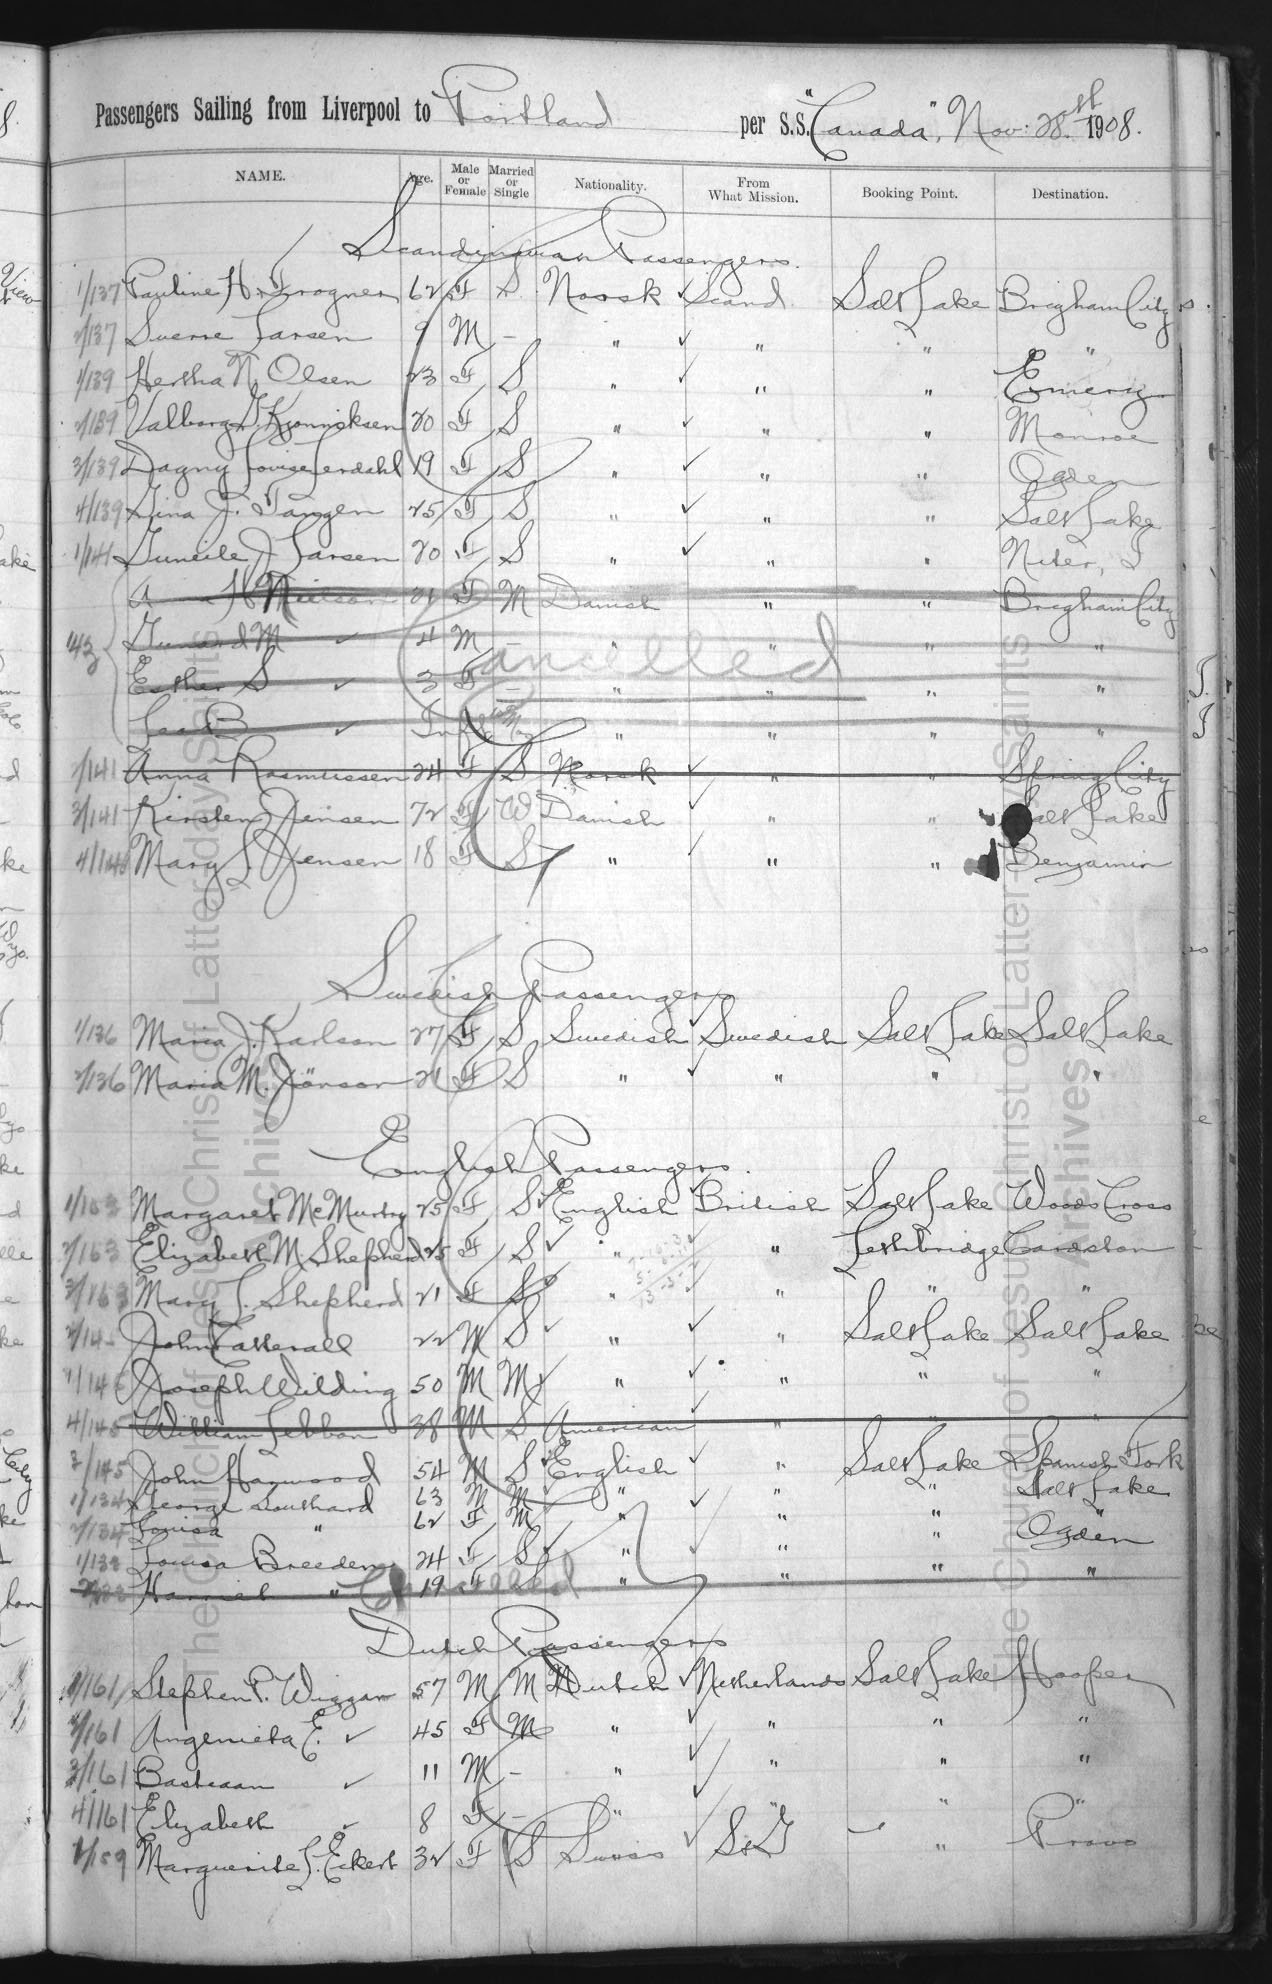 Passengers Sailing from Liverpool to Portland per S.S. "Canada", Nov: 28th 1908.
NAME. Age. Male or Female Married or Single Nationality. From What Mission. Booking Point. Destination.
Scandinavian Passengers.
1/137 Pauline H. 62 F S. Norsk ✓ Scand Salt Lake Brigham City
2/137 Sverre Larsen 9 M - " ✓ " " "
1/139 Hertha N. Olsen 23 F S " ✓ " " Emery
2/139 Valborg 20 F S " ✓ " " Monroe
3/139 Dagny Lovise 19 F S " ✓ " " Ogden
4/139 Lina J. Tangen 25 F S " ✓ " " Salt Lake
1/141 J Larsen 20 F S " ✓ " " Niter, I
H Nielson F M Danish " " Brigham City
M ✓ 4 M - " " " "
Esther S ✓ 3 F - " " " "
B ✓ Inft " " " "
Cancelled
2/141 Anna Rasmussen 24 F S Norsk ✓ " " Spring City
3/141 Kirsten Jensen 72 F W Danish ✓ " " Salt Lake
4/141 Mary S Jensen 18 F S " ✓ " " Benjamin
Swedish Passengers
1/136 Maria J. Karlson 27 F S Swedish ✓ Swedish Salt Lake Salt Lake
2/136 Maria M. Jönson 21 F S " ✓ " " "
English Passengers.
1/163 Margaret McMurtry 25 F S ✓ English ✓ British Salt Lake Woods Cross
2/163 Elizabeth M. Shepherd 25 F S ✓ " ✓ " Lethbridge Cardston
3/163 Mary L. Shepherd 21 F S " ✓ " " "
John Catterall 22 M S ✓ " ✓ " Salt Lake Salt Lake
Joseph Wilding 50 M M ✓ " ✓ " " "
4/145 William Lebban 38 M S American ✓ " " "
3/145 John Harwood 54 M S ✓ English ✓ " Salt Lake Spanish Fork
1/134 George Southard 63 M M ✓ " ✓ " " Salt Lake
2/134 Louisa " 62 F M ✓ " ✓ " " "
1/133 Louisa Breeden 24 F S ✓ " ✓ " " Ogden
Harriet " 19 F S " " " "
Cancelled
Dutch Passengers
1/161 Stephen P. Wiggan 57 M M Dutch ✓ Netherlands Salt Lake Hooper
2/161 Angenieta E. ✓ 45 F M " ✓ " " "
3/161 Bastiaan ✓ 11 M - " ✓ " " "
4/161 Elizabeth ✓ 8 F - " ✓ " " "
1/159 Marguerite L. Eckert 32 F S Swiss ✓ S&G " Provo
The Church of Jesus Christ of Latter-day Saints
Archives
The Church of Jesus Christ of Latter-day Saints
Archives